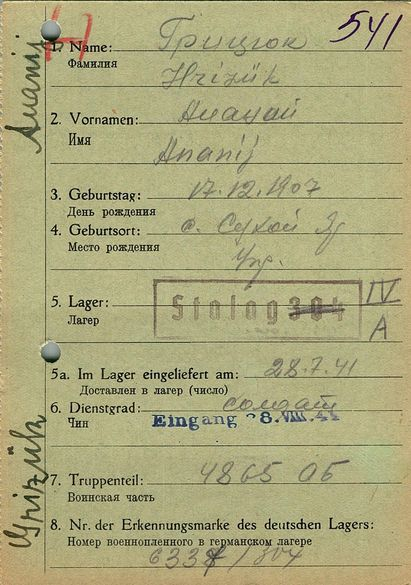 541
1. Name: Грицюк
Фамилия
Hrizük
2. Vornamen:
Имя
Ananij
3. Geburtstag: 17.12.1907
День рождения
4. Geburtsort: с.
Место рождения
5. Lager: Stalag 304 IV
Лагер A
5a. Im Lager eingeliefert am: 28.7.41
Доставлен в лагер (число)
6. Dienstgrad: солдат
Чин Eingang 8. VIII. 41
7. Truppenteil: 4865 ОБ
Воинская часть
8. Nr. der Erkennungsmarke des deutschen Lagers:
Номер военнопленного в германском лагере
/304
Ananij
Grizük